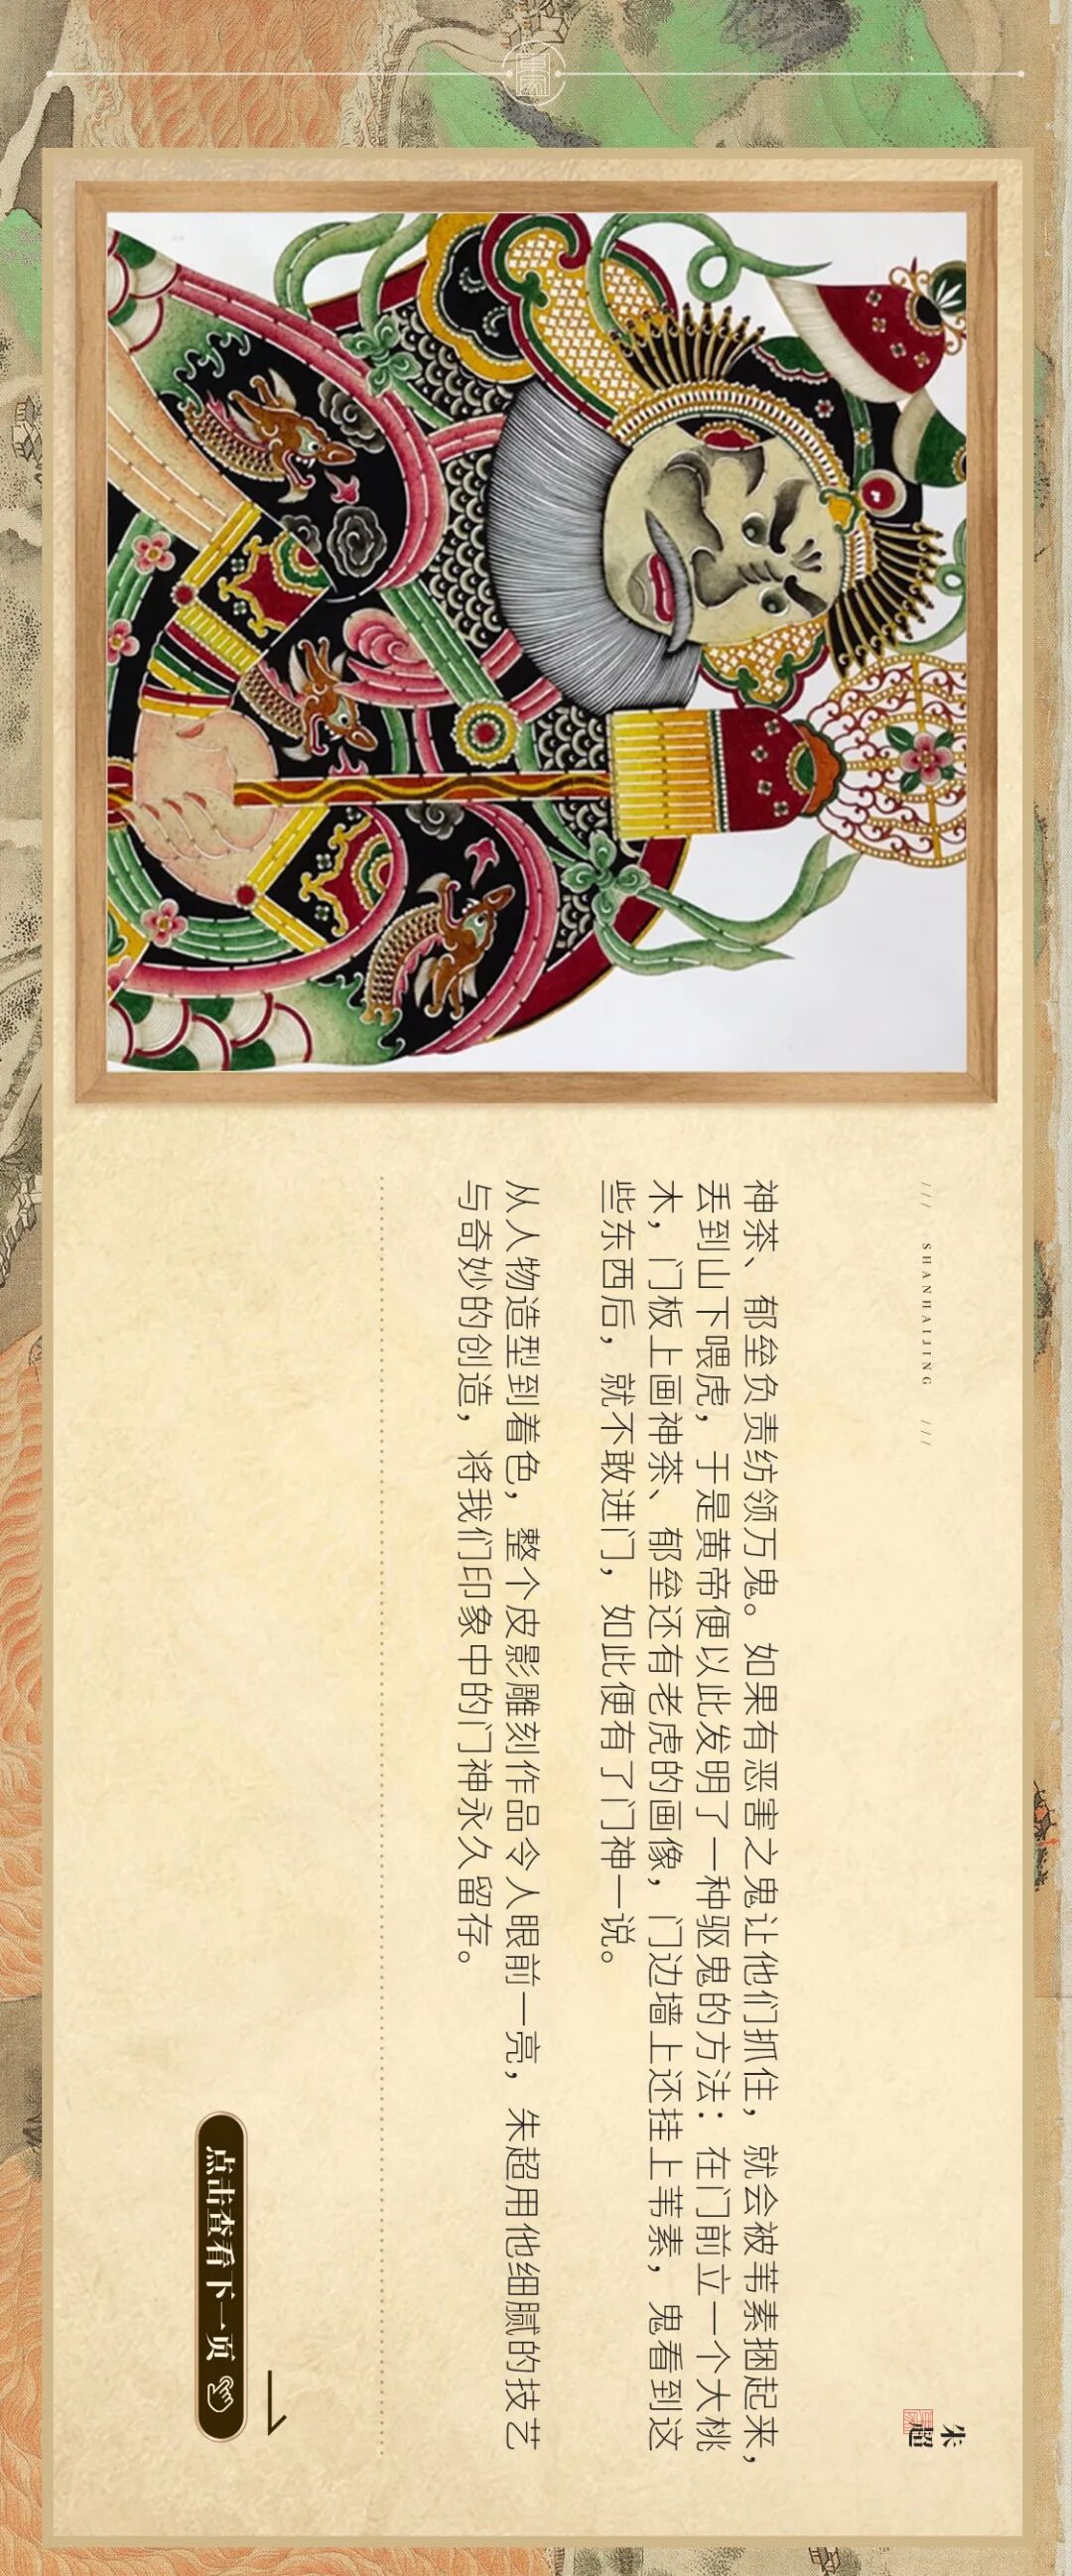 /// SHANHAIJING ///
朱
超
神茶、郁垒负责纺领万鬼。如果有恶害之鬼让他们抓住，就会被苇素捆起来，
丢到山下喂虎，于是黄帝便以此发明了一种驱鬼的方法：在门前立一个大桃
木，门板上画神茶、郁垒还有老虎的画像，门边墙上还挂上苇素，鬼看到这
些东西后，就不敢进门，如此便有了门神一说。
从人物造型到着色，整个皮影雕刻作品令人眼前一亮，朱超用他细腻的技艺
与奇妙的创造，将我们印象中的门神永久留存。
点击查看下一页